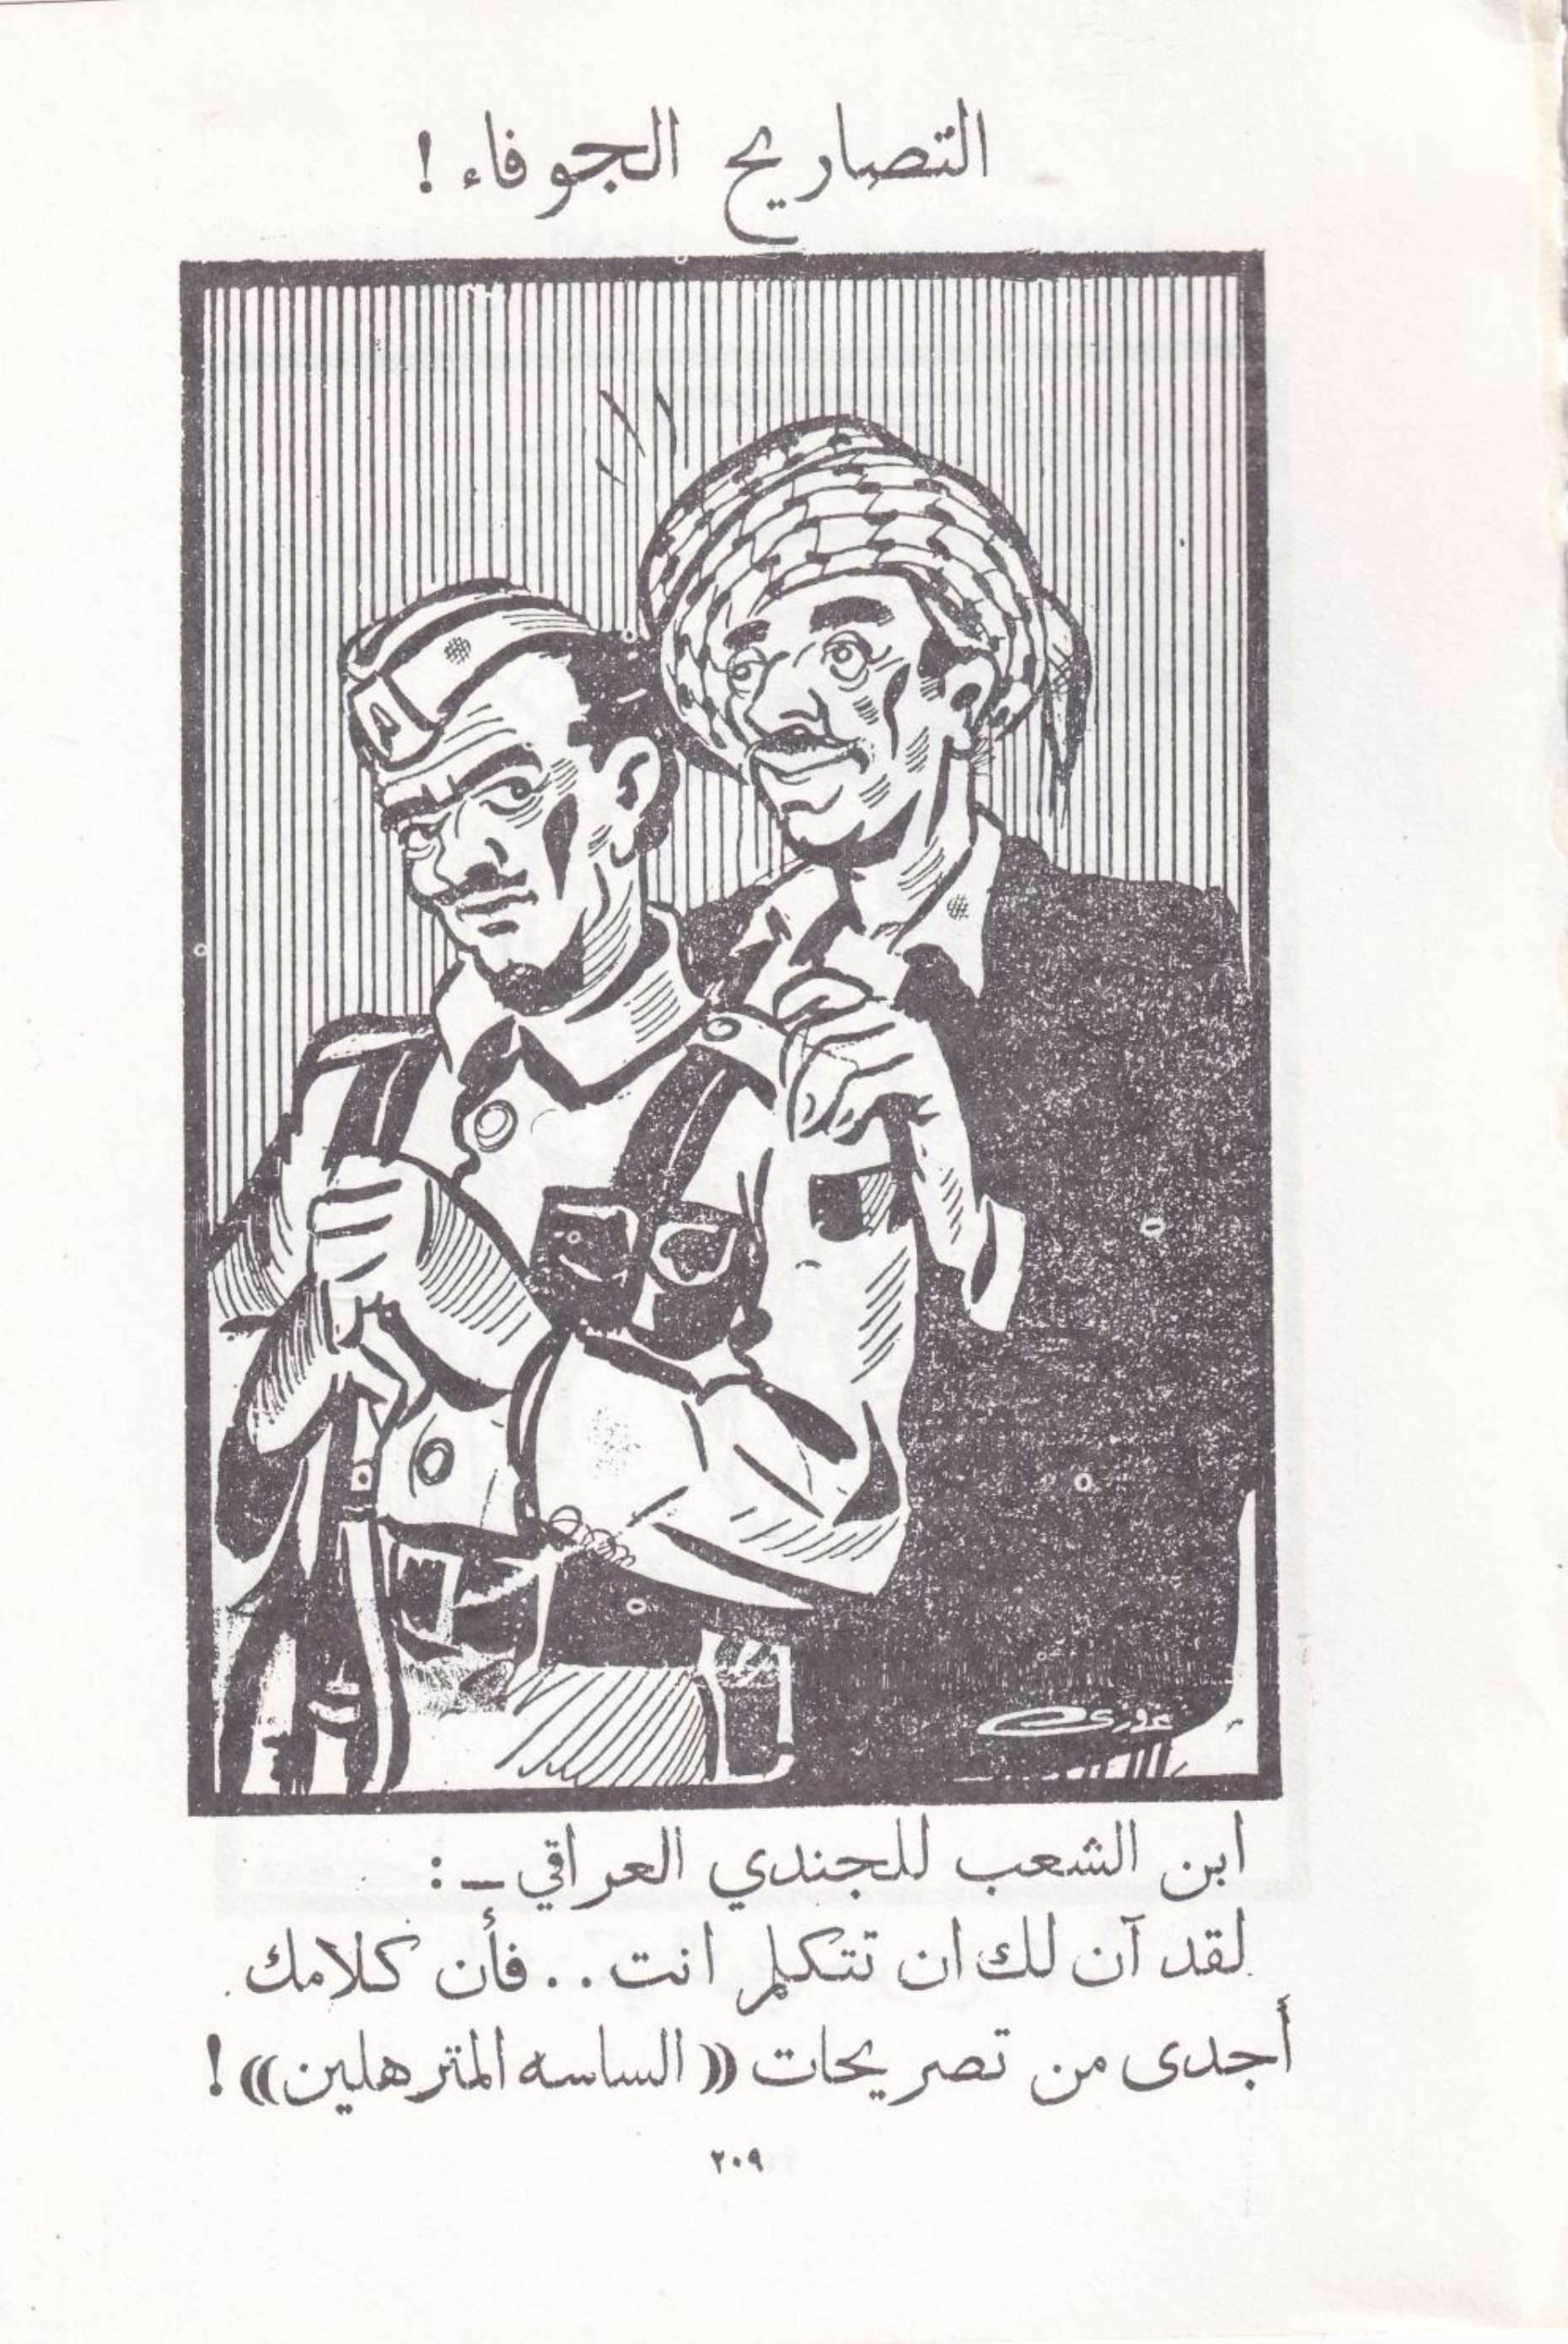 التصاريح الجوفاء !
ابن الشعب للجندي العراقي ـ :
لقد آن لك ان تتكلم انت . . فأن كلامك
أجدى من تصريحات ((الساسه المترهلين)) !
٢٠٩